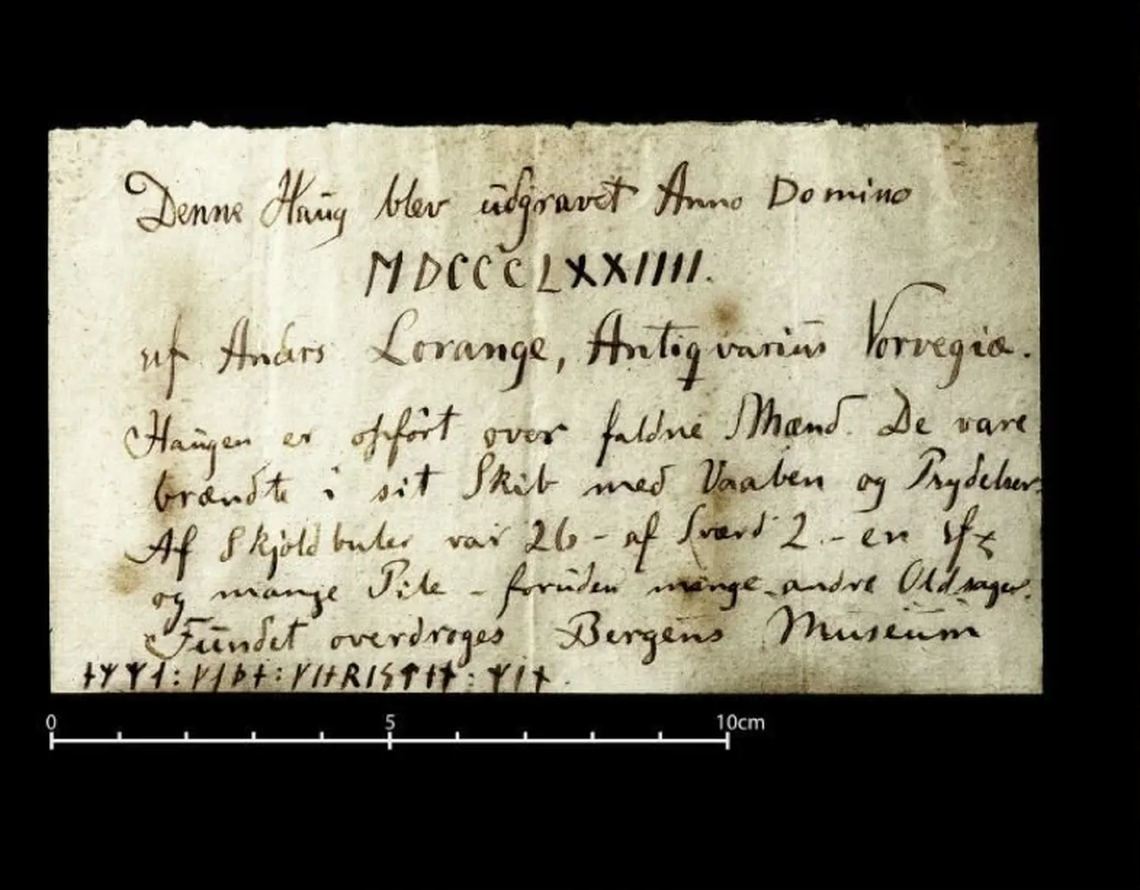 Denne Haug blev udgravet Anno Domino
MDCCCLXXIIII.
af Anders Lorange, Antiqvarius Norvegiæ.
Haugen er opfört over faldne Mænd. De vare
brændte i sit Skib med Vaaben og Prydelser.
Af Skjoldbuler var 26 - af Sværd 2 - en
og mange Pile - foruden mange andre Oldsager.
Fundet overdroges Bergens Museum
0 5 10cm